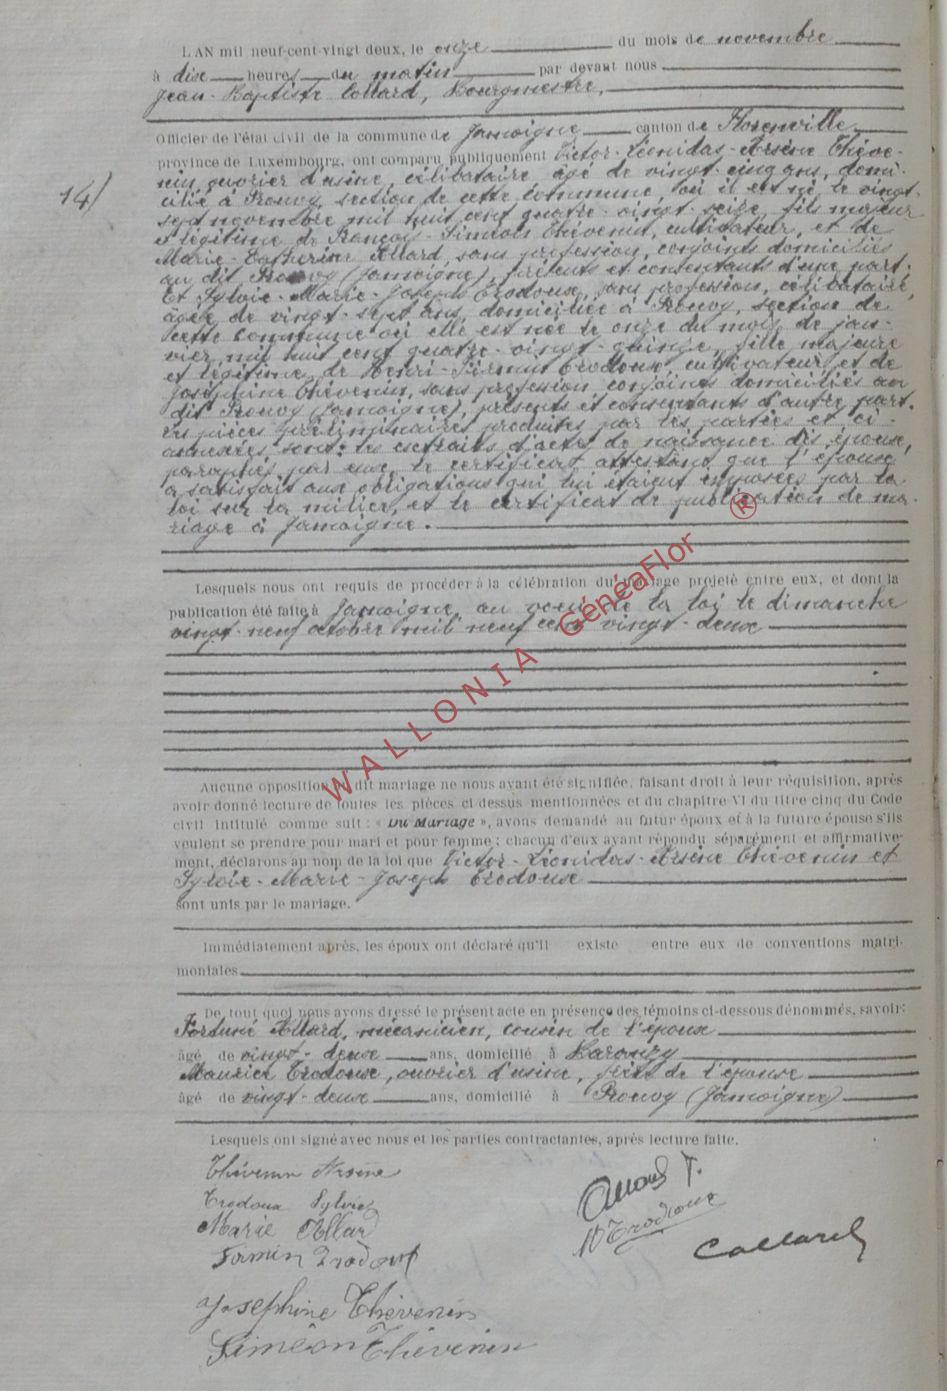 L'AN mil neuf-cent-vingt deux, le onze du mois de novembre
à dix heures du matin par devant nous
Jean-Baptiste Collard, Bourgmestre,
Officier de l'état civil de la commune de Jamoigne canton de Florenville
province de Luxembourg, ont comparu publiquement Victor-Léonidas-Arsène Théve-
nin, ouvrier d'usine, célibataire âgé de vingt-cinq ans, domi-
cilié à Prouvy, section de cette commune, où il est né le vingt-
sept novembre mil huit cent quatre-vingt-seize, fils majeur
et légitime de François-Siméon Thévenin, cultivateur, et de
Marie-Catherine Allard, sans profession, conjoints domiciliés
au dit Prouvy (Jamoigne), présents et consentants d'une part.
Et Sylvie-Marie-Joseph Trodoux, sans profession, célibataire,
âgée de vingt-sept ans, domiciliée à Prouvy, section de
cette commune où elle est née le onze du mois de jan-
vier, mil huit cent quatre-vingt-quinze, fille majeure
et légitime de Henri-Firmin Trodoux, cultivateur et de
Joséphine Thévenin, sans profession, conjoints domiciliés au
dit Prouvy (Jamoigne), présents et consentants d'autre part.
Les pièces préliminaires produites par les parties et ci-
annexées sont: les extraits d'actes de naissance des époux,
paraphés par eux, le certificat attestant que l'époux
a satisfait aux obligations qui lui étaient imposées par la
loi sur la milice, et le certificat de publication de ma-
riage à Jamoigne.
Lesquels nous ont requis de procéder à la célébration du mariage projeté entre eux, et dont la
publication été faite à Jamoigne, au vœu de la loi le dimanche
vingt-neuf octobre mil neuf cent vingt-deux
Aucune opposition au dit mariage ne nous ayant été signifiée, faisant droit à leur réquisition, après
avoir donné lecture de toutes les pièces ci dessus mentionnées et du chapitre VI du titre cinq du Code
civil intitulé comme suit : « Du Mariage », avons demandé au futur époux et à la future épouse s'ils
veulent se prendre pour mari et pour femme ; chacun d'eux ayant répondu séparément et affirmative-
ment, déclarons au nom de la loi que Victor-Léonidas-Arsène Thévenin et
Sylvie-Marie-Joseph Trodoux
sont unis par le mariage.
Immédiatement après, les époux ont déclaré qu'il existe entre eux de conventions matri-
moniales
De tout quoi nous avons dressé le présent acte en présence des témoins ci-dessous dénommés, savoir:
Fortuné Allard, mécanicien, cousin de l'époux
âgé de vingt-deux ans, domicilié à Baranzy
Maurice Trodoux, ouvrier d'usine, frère de l'épouse
âgé de vingt-deux ans, domicilié à Prouvy (Jamoigne)
Lesquels ont signé avec nous et les parties contractantes, après lecture faite.
Thévenin Arsène
Trodoux Sylvie
Marie Allard
Firmin Trodoux
Joséphine Thévenin
Siméon Thévenin
Allard F.
M Trodoux
Collard
14/
WALLONIA GénéaFlor ®